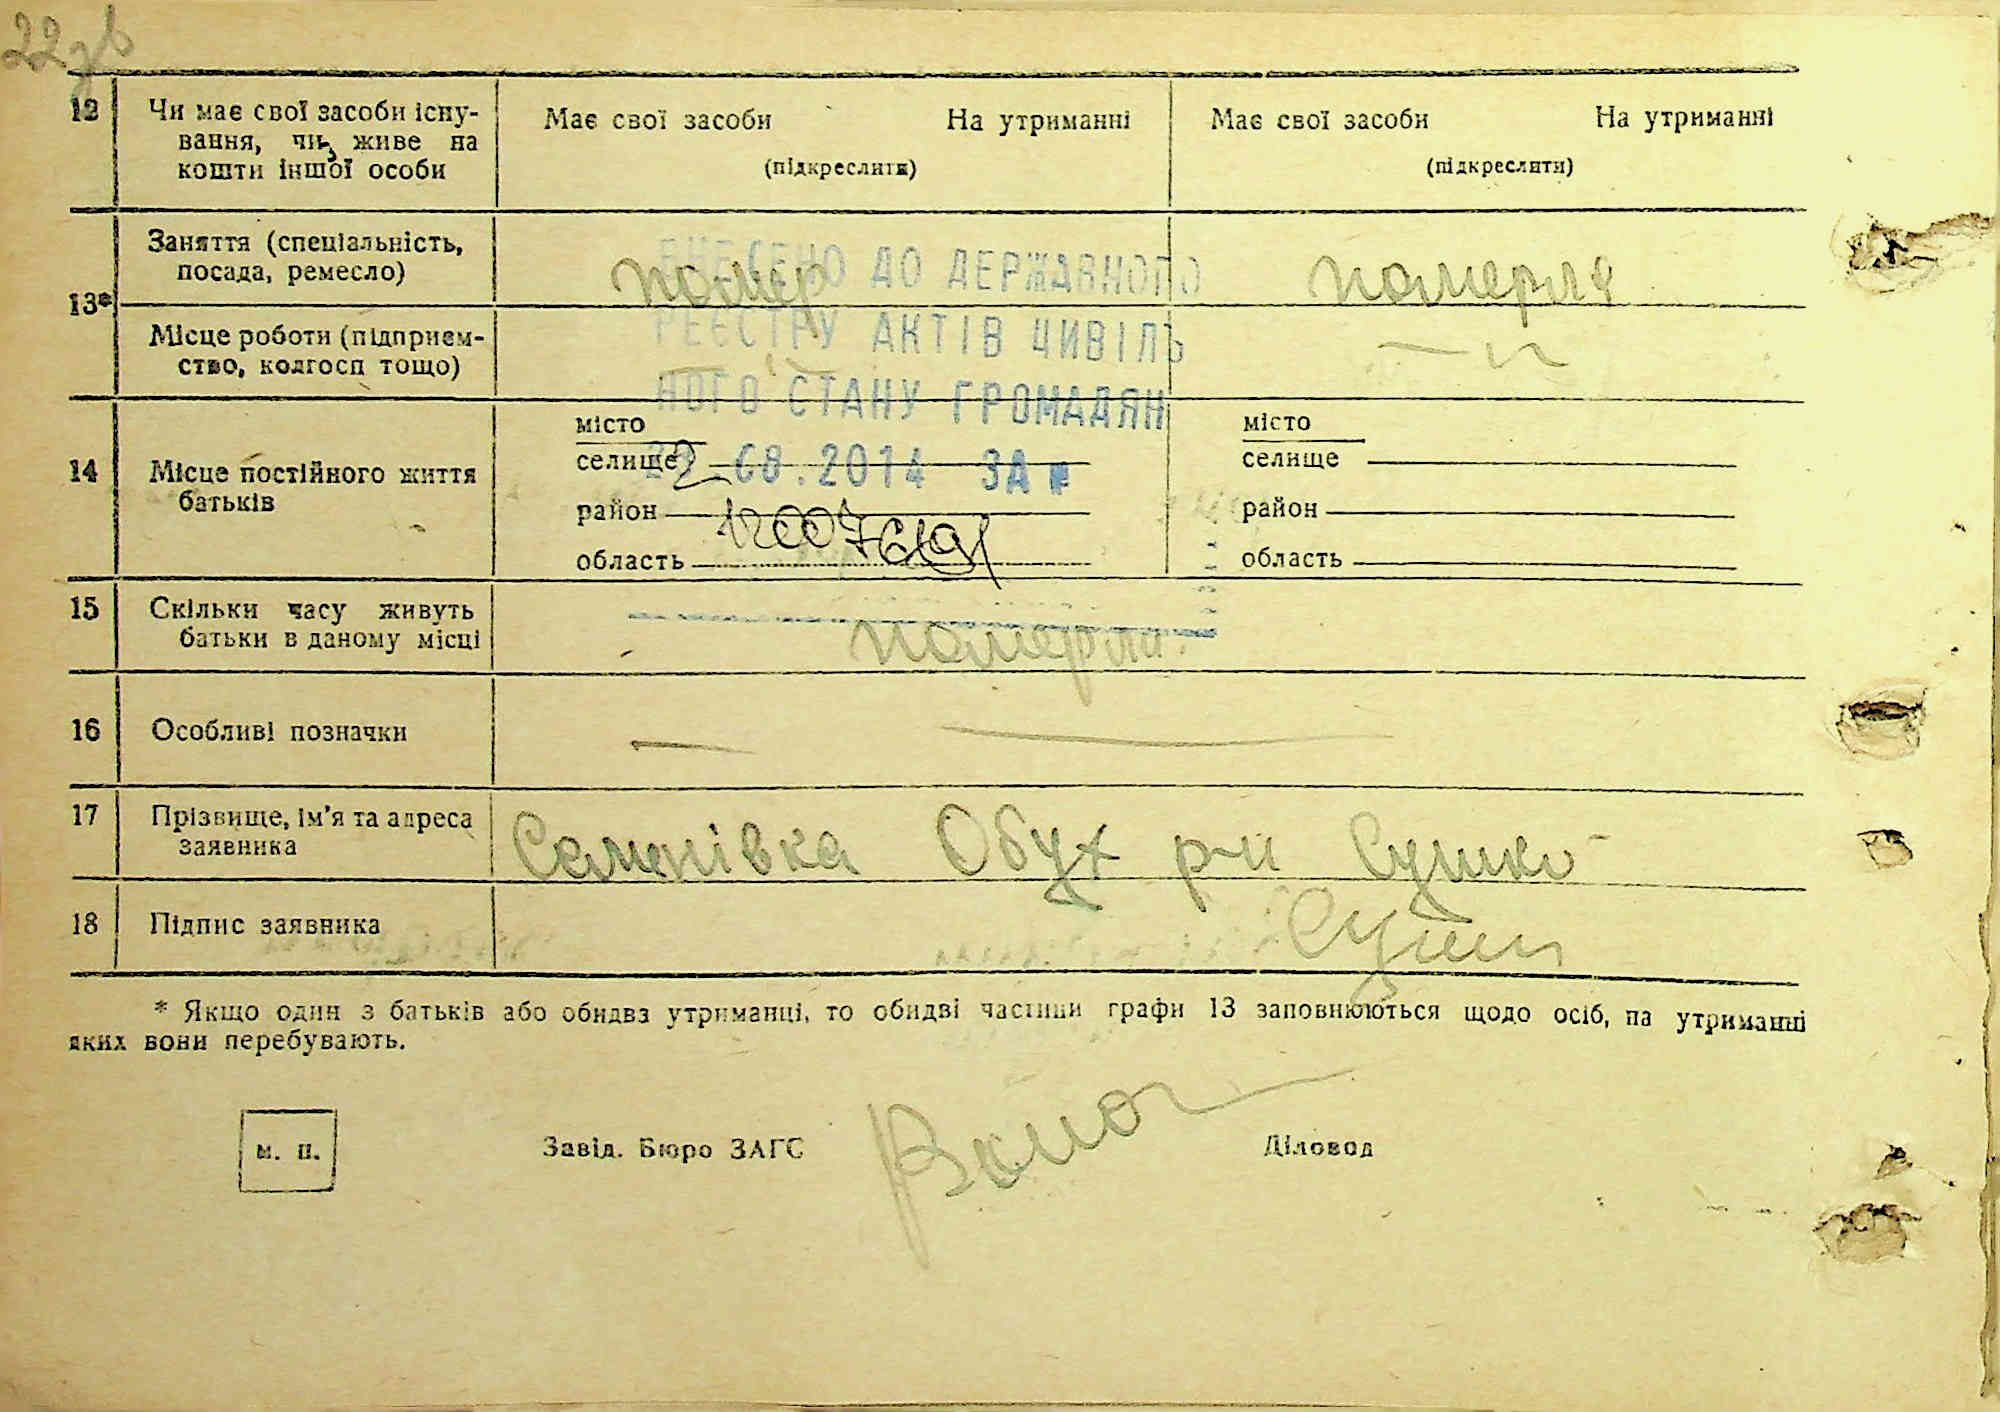 22зв
12
Чи має свої засоби існу-
вання, чи живе на
кошти іншої особи
Має свої засоби На утриманні
(підкреслити)
Має свої засоби На утриманні
(підкреслити)
13*
Заняття (спеціальність,
посада, ремесло)
помер
померла
Місце роботи (підприєм-
ство, колгосп тощо)
— " —
— " —
ВНЕСЕНО ДО ДЕРЖАВНОГО
РЕЄСТРУ АКТІВ ЦИВІЛЬ
НОГО СТАНУ ГРОМАДЯН
22.08.2014 ЗА №
14
Місце постійного життя
батьків
місто
селище
район
область
місто
селище
район
область
15
Скільки часу живуть
батьки в даному місці
померли.
16
Особливі позначки
17
Прізвище, ім'я та адреса
заявника
Семенівка Обух р-н Сушко
18
Підпис заявника
* Якщо один з батьків або обидва утриманці, то обидві частини графи 13 заповнюються щодо осіб, на утриманні
яких вони перебувають.
м. п.
Завід. Бюро ЗАГС
Діловод